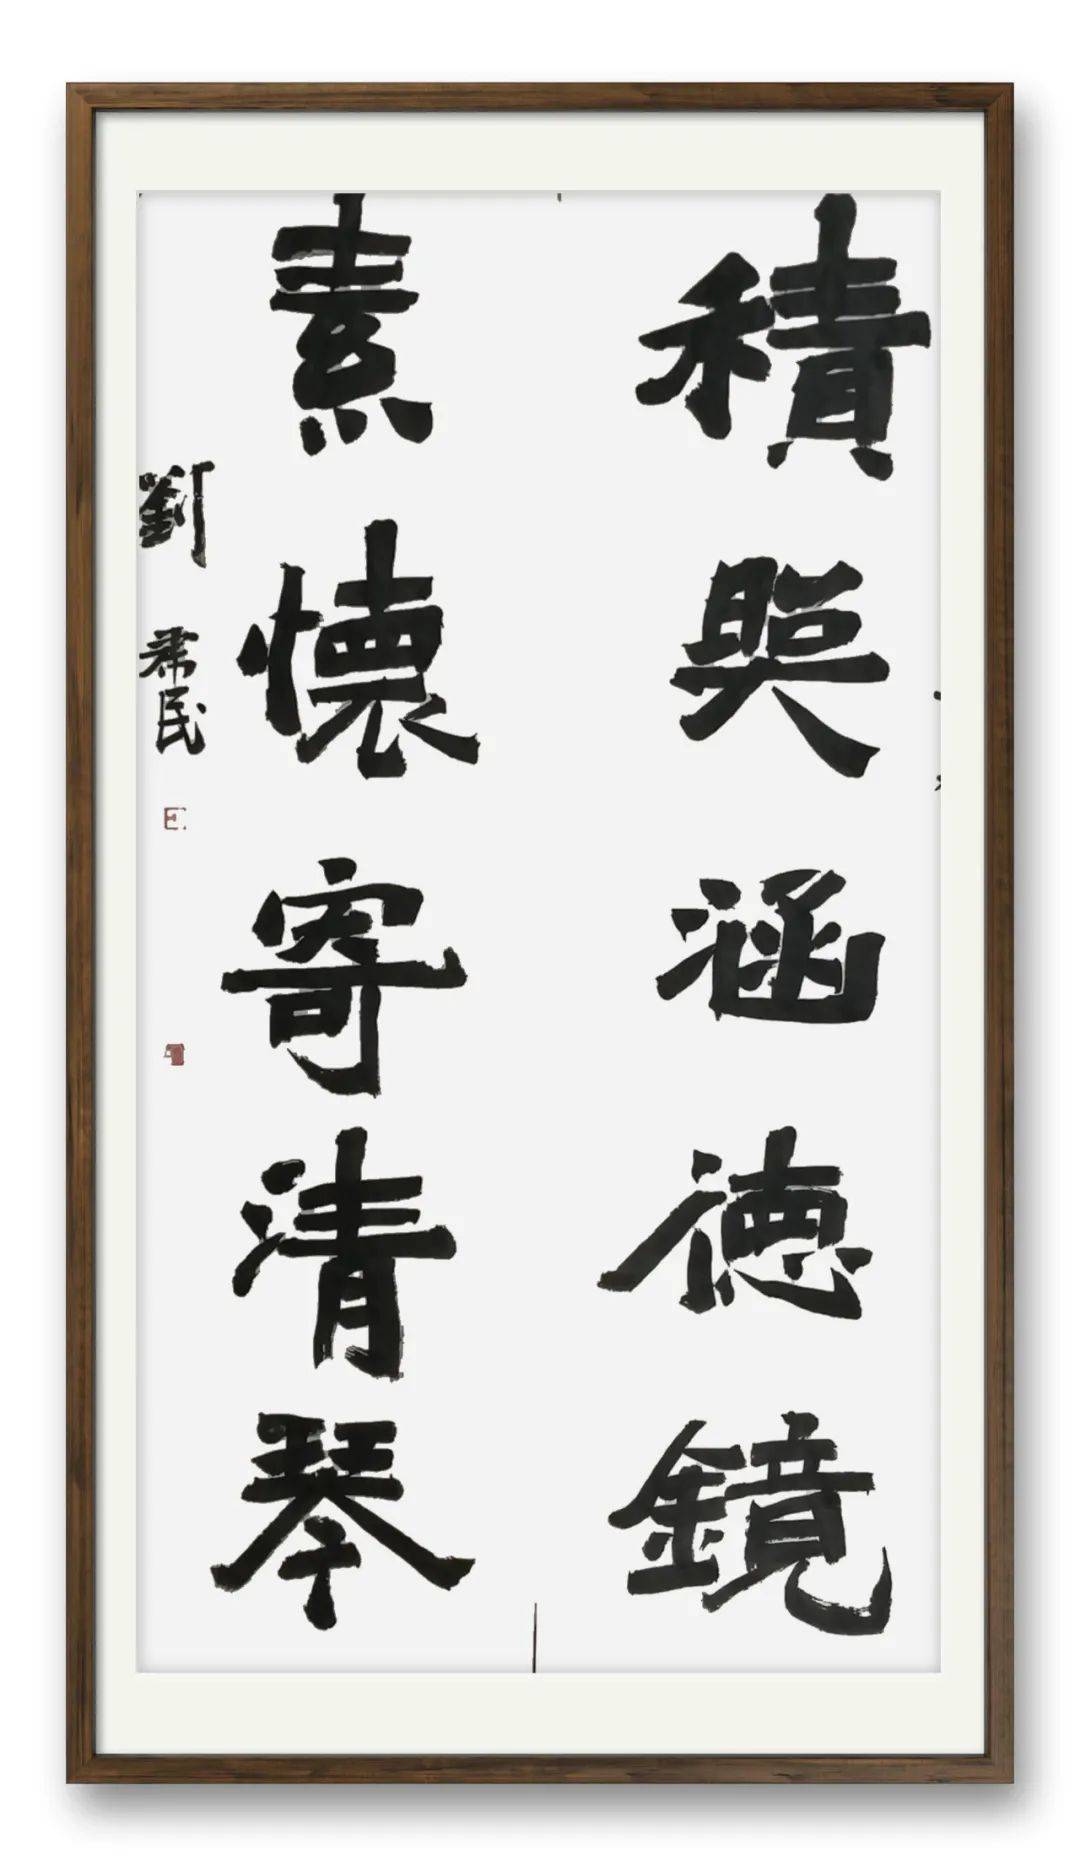 積照涵德鏡
素懷寄清琴
劉 民